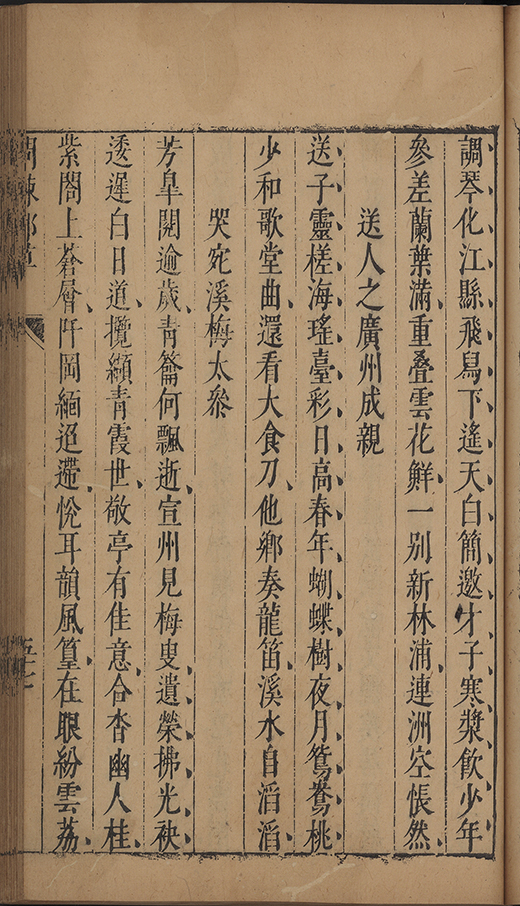 調琴化江縣飛舄下遙天白簡邀才子寒漿飲少年
參差蘭葉滿重疊雲花鮮一別新林浦連洲空悵然
送人之廣州成親
送子靈槎海瑤臺彩日高春年蝴蝶樹夜月鴛鴦桃
少和歌堂曲還看大食刀他鄉奏龍笛溪水自滔滔
哭宛溪梅太參
芳皐閱逾歲青籥何飄逝宣州見梅叟遺榮拂光袂
逶遲白日道攬纈青霞世敬亭有佳意合沓幽人桂
紫閣上蒼層阡岡緬迢遰悅耳韻風篁在眼紛雲荔